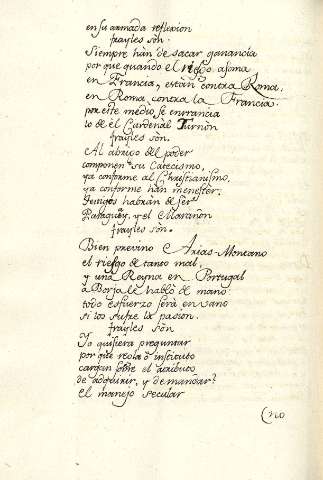 en su armada reflexion
frayles són.
Siempre hán de sacar ganancia
por que quando el riesgo asoma
en Francia, están contra Roma,
en Roma contra la Francia.
por este medio se
lo de él Cardenál Turnòn
frayles són.
Al abrigo del poder
componen su Catecismo,
ya conforme al Christianismo,
ya conforme hán menester.
Testigos habrán de ser
Paraguay, y el Marañon
frayles són.
Bien previno Arias-Montano
el riesgo de tanto mal
y una Reyna en Portugal
a Borja le habló de mano
todo esfuerzo será en vano
si los sufre la pasion.
frayles són
Yo quisiera preguntar
por que regla ò instituto
cargan sobre el atributo
de adquirir, y demandar?
el manejo secular
(no